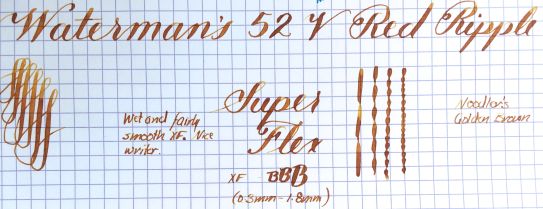 Waterman's 52 V Red Ripple
Super
Flex
Wet and fairly
smooth XF. Nice
writer.
XF BBB
(0.3mm - 1.8mm)
Noodler's
Golden Brown